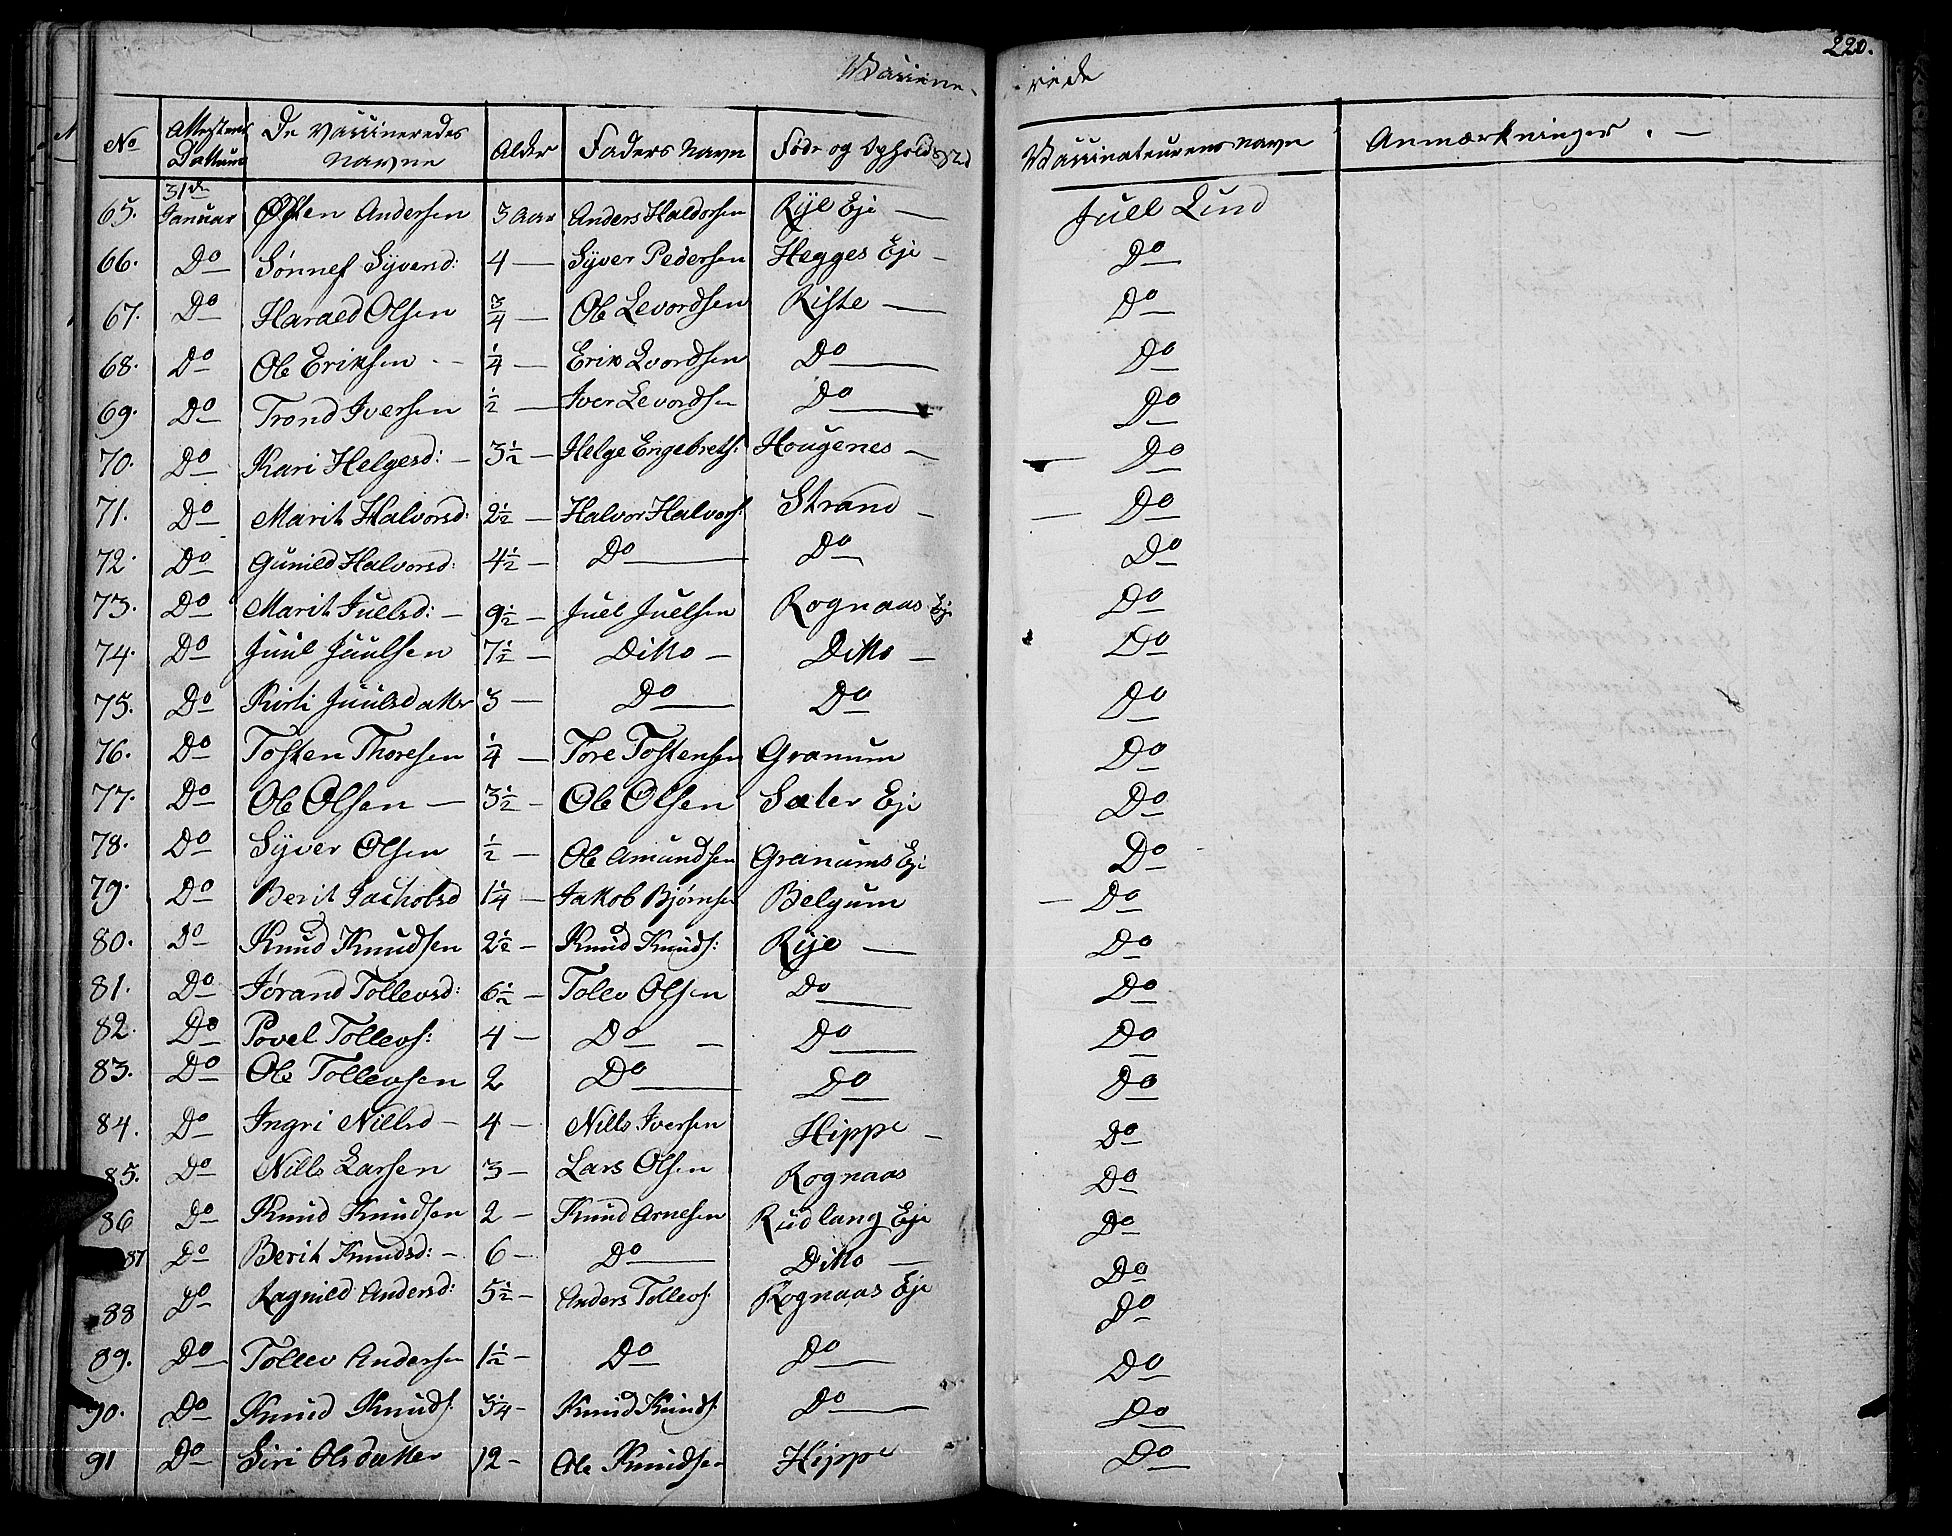 Vaccine- rede
220.
No Attestens Dattum De Vaccineredes Navne Alder Faders Navn Føde og Opholdssted Vaccinateurens navn Anmærkninger. —
65. 31de Januar Østen Andersen 3 Aar Anders Haldorsen Rye Eje — Juel Lind
66. Do Sønnef Syversd: 4 — Syver Pedersen Hegges Eje — Do
67. Do Harald Olsen 3/4 — Ole Levordsen Riste — Do
68. Do Ole Eriksen - - 1/4 — Erik Lvordsen Do Do
69. Do Trond Iversen 1/2 — Iver Levordsen Do Do
70. Do Kari Helgesd: — 3 1/2 — Helge Engebrets: Hougenes — Do
71. Do Marit Halvorsd: 2 1/2 — Halvor Halvors: Strand — Do
72. Do Gunild Halvorsd: 4 1/2 — Do Do Do
73. Do Marit Juelsd: — 9 1/2 — Juel Juelsen Rognaas Eje Do
74. Do Juul Juulsen 7 1/2 — Ditto — Ditto — Do
75. Do Kirti Juulsdatter 3 — Do Do Do
76. Do Tosten Thoresen 1/4 — Tore Tostensen Granum Do
77. Do Ole Olsen — 3 1/2 — Ole Olsen Sæter Eje Do
78. Do Syver Olsen 1/2 — Ole Amundsen Granums Eje Do
79. Do Berit Jachobsd 1 1/4 — Jakob Bjørnsen Belgum — Do
80. Do Knud Knudsen 2 1/2 — Knud Knuds: Rye — Do
81. Do Jørand Tollevsd: 6 1/2 — Tolev Olsen Do Do
82. Do Povel Tollevs: 4 — Do — Do Do
83. Do Ole Tollevsen 2 Do Do Do
84. Do Ingri Nillsd — 4 — Nills Iversen Hippe — Do
85. Do Nills Larsen 3 — Lars Olsen Rognaas Do
86 Do Knud Knudsen 2 — Knud Arnesen Rudlang Eje Do
87 Do Berit Knudsd: — 6 — Do Ditto — Do
88 Do Ragnild Andersd: 5 1/2 — Anders Tollevs: Rognaas Eje Do
89. Do Tollev Andersen 1 1/2 — Do Do Do
90. Do Knud Knuds: 3/4 — Knud Knuds: Do Do
91 Do Siri Olsdatter 12 — Ole Knudsen Hippe Do